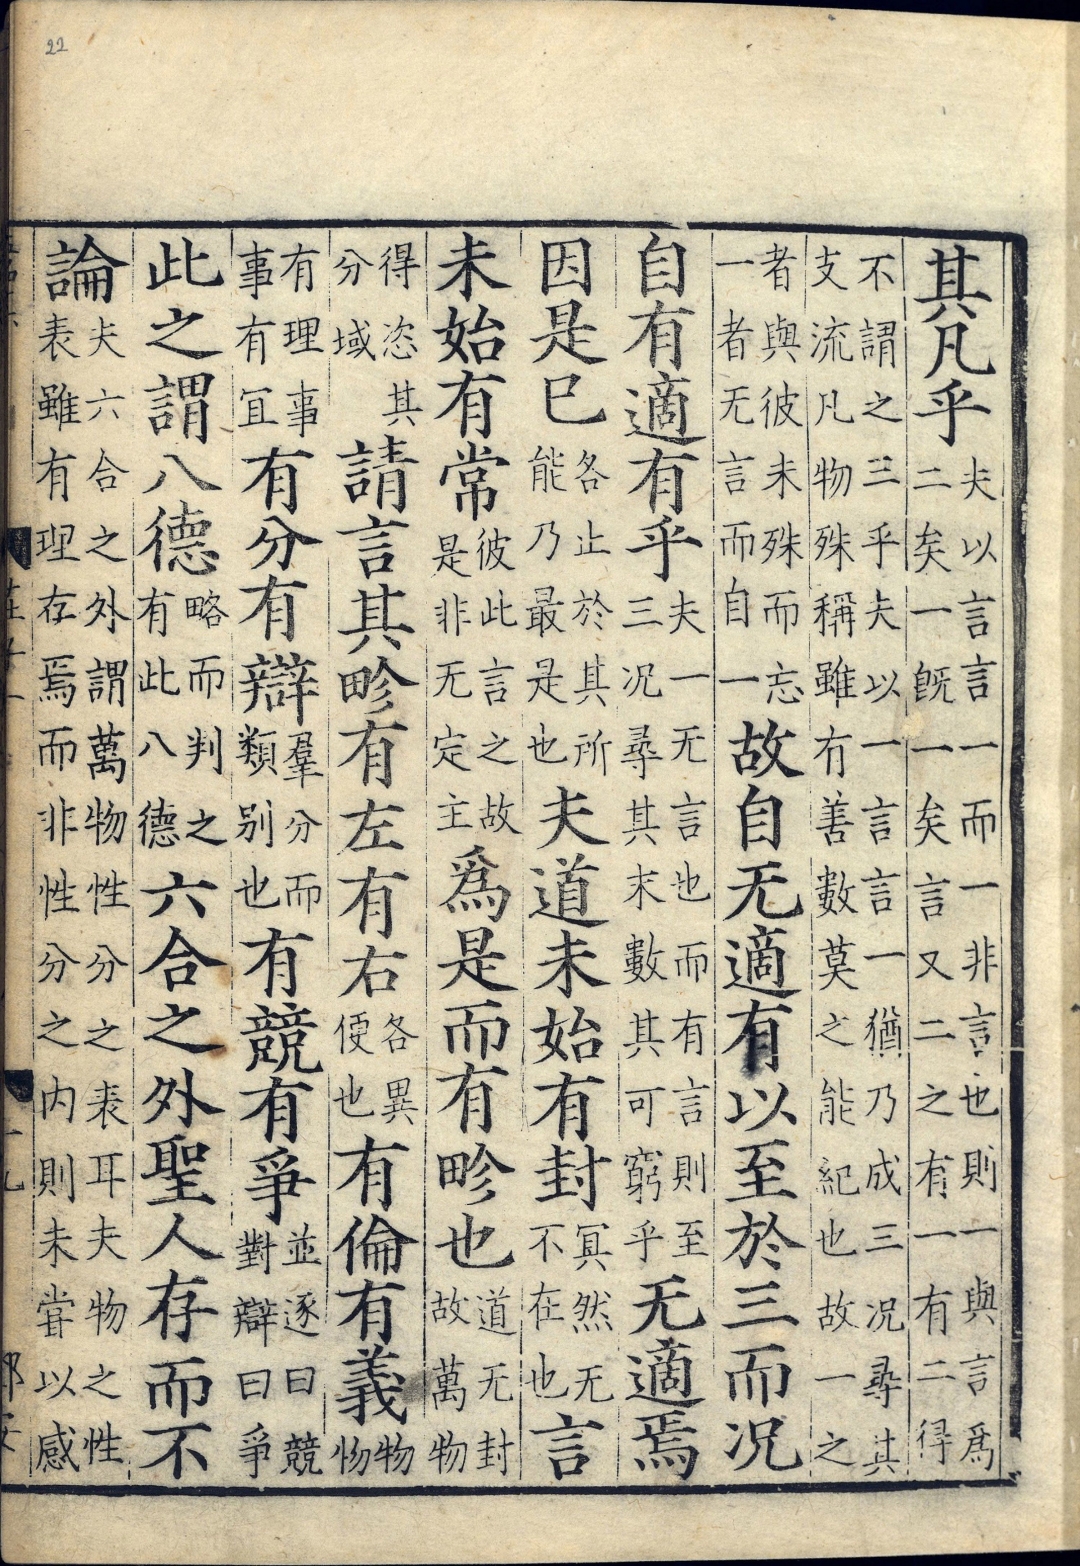 22
其凡乎夫以言言一而一非言也則一與言爲二矣一旣一矣言又二之有一有二得
不謂之三乎夫以一言言一猶乃成三况尋其支流凡物殊稱雖有善數莫之能紀也故一之
者與彼未殊而忘一者无言而自一故自无適有以至於三而况
自有適有乎夫一无言也而有言則至三况尋其末數其可窮乎无適焉
因是巳各止於其所能乃最是也夫道未始有封冥然无不在也言
未始有常彼此言之故是非无定主爲是而有畛也道无封故萬物
得恣其分域請言其畛有左有右各異便也有倫有義物物
有理事事有宜有分有辯羣分而類别也有競有爭並逐曰競對辯曰爭
此之謂八德略而判之有此八德六合之外聖人存而不
論夫六合之外謂萬物性分之表耳夫物之性表雖有理存焉而非性分之内則未嘗以感